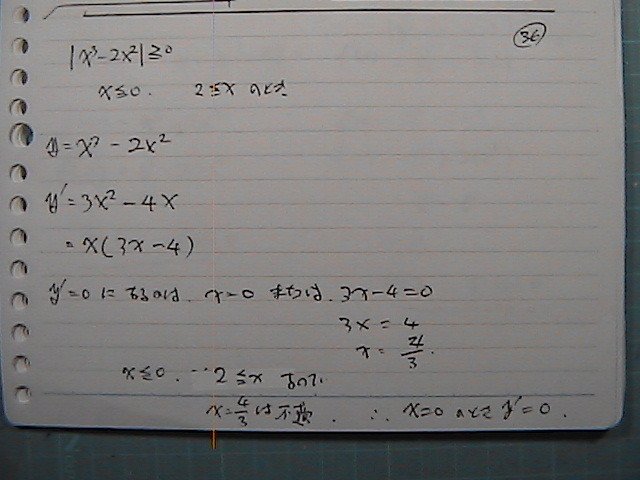 36
|x³-2x²|≧0
x≦0. 2≦x のとき
y=x³-2x²
y'=3x²-4x
=x(3x-4)
y'=0になるのは. x=0 または. 3x-4=0
3x=4
x=4/3.
x≦0. 2≦x なので.
x=4/3は不適. ∴ x=0のとき y'=0.